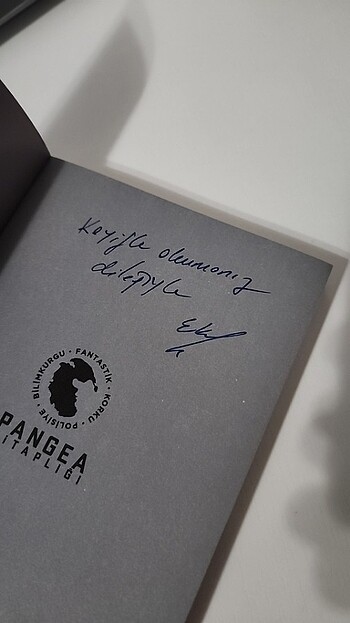 Keyifle okumanız
dileğiyle
BİLİMKURGU • FANTASTİK • KORKU • POLİSİYE •
PANGEA
İTAPLIĞI